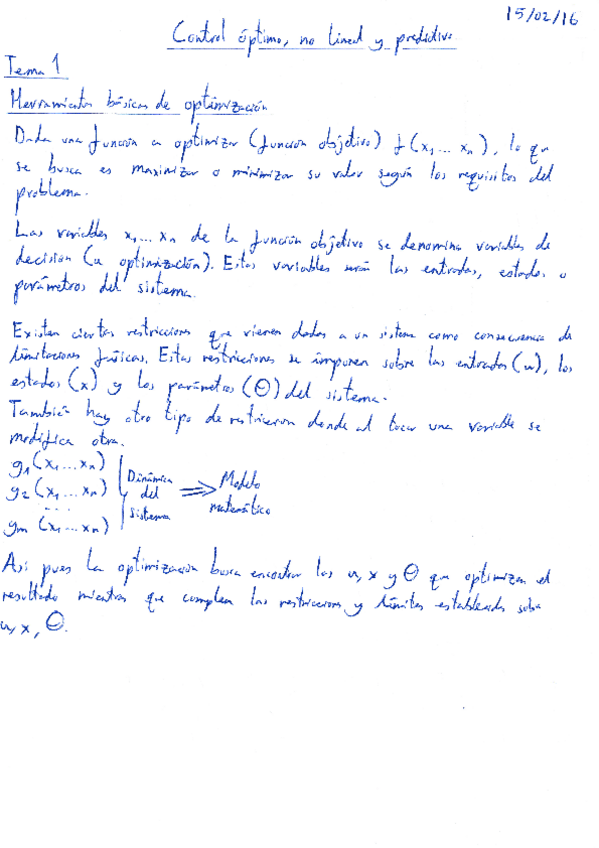 15/02/16
Control óptimo, no lineal y predictivo
Tema 1
Herramientas básicas de optimización
Dada una función a optimizar (función objetivo) f(x₁ ... xₙ), lo que
se busca es maximizar o minimizar su valor según los requisitos del
problema.
Las variables x₁ ... xₙ de la función objetivo se denomina variables de
decisión (u optimización). Estas variables serán las entradas, estados o
parámetros del sistema.
Existen ciertas restricciones que vienen dadas a un sistema como consecuencia de
limitaciones físicas. Estas restricciones se imponen sobre las entradas (u), los
estados (x) y los parámetros (Θ) del sistema.
También hay otro tipo de restricción donde al tocar una variable se
modifica otra.
g₁ (x₁ ... xₙ)
g₂ (x₁ ... xₙ)
... ...
gₘ (x₁ ... xₙ)
Dinámica
del
sistema
⇒ Modelo
matemático
Así pues la optimización busca encontrar los u, x y Θ que optimizan el
resultado mientras que cumplen las restricciones y límites establecidos sobre
u, x, Θ.